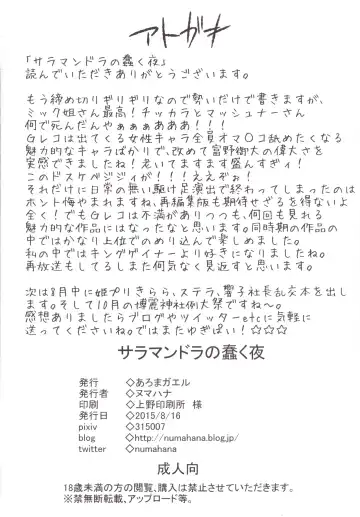 アトガキ
「サラマンドラの蠢く夜」
読んでいただきありがとうございます。
もう締め切りギリギリなので勢いだけで書きますが、
ミック姐さん最高!チッカラとマッシュナーさん
何で死んだんやぁぁぁあああ!!!
Gレコは出てくる女性キャラ全員オマ〇コ舐めたくなる
魅力的なキャラばかりで、改めて富野御大の偉大さを
実感できましたね!老いてますます盛んすぎィ!
このドスケベジジィが!!!ええぞぉ!
それだけに日常の無い駆け足演出で終わってしまったのは
ホント悔やまれますね、再編集版も期待せざるを得ないよ
全く!でもGレコは不満がありつつも、何回も見れる
魅力的な作品にはなったなと思います。同時期の作品の
中ではかなり上位でのめり込んで楽しめました。
私の中ではキングゲイナーより好きになりましたね。
再放送もしてるしまた何気なく見返すと思います。
次は8月中に姫プリきらら、ステラ、響子社長乱交本を出し
ます。そして10月の博麗神社例大祭ですね〜。
感想ありましたらブログやツイッターetcに気軽に
送ってくださいね。ではまたゆぎぱい!☆☆☆
サラマンドラの蠢く夜
発行 ◇あろまガエル
発行者 ◇ヌマハナ
印刷 ◇上野印刷所 様
発行日 ◇2015/8/16
pixiv ◇315007
blog ◇http://numahana.blog.jp/
twitter ◇numahana
成人向
18歳未満の方の閲覧、購入は禁止させていただきます。
※禁無断転載、アップロード等。